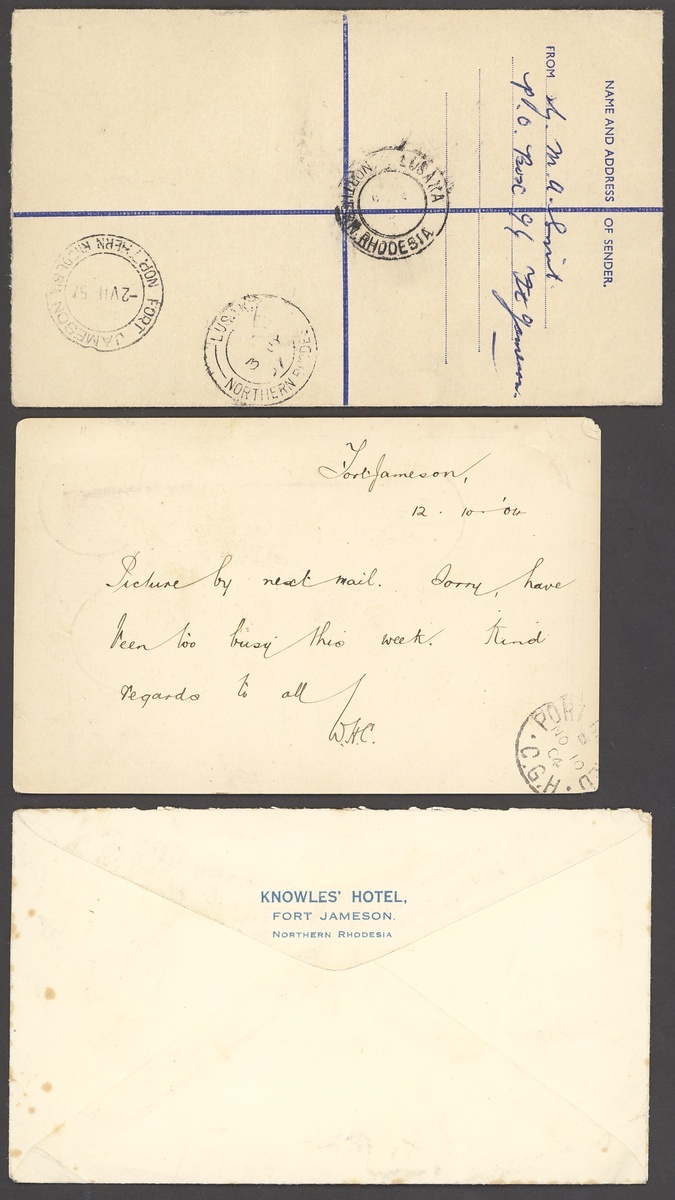 NAME AND ADDRESS OF SENDER.
FROM Dr. M. A. Smit
P.O. Box 94 Ft Jameson.
LUSAKA
NORTHERN RHODESIA
FORT JAMESON
NORTHERN RHODESIA
-2 VII 57
LUSAKA
NORTHERN RHODESIA
Fort Jameson,
12 . 10 . '04
Picture by next mail. Sorry, have
been too busy this week. Kind
regards to all
W.H.C.
PORT
NO 10
04
C.G.H.
KNOWLES' HOTEL,
FORT JAMESON.
NORTHERN RHODESIA